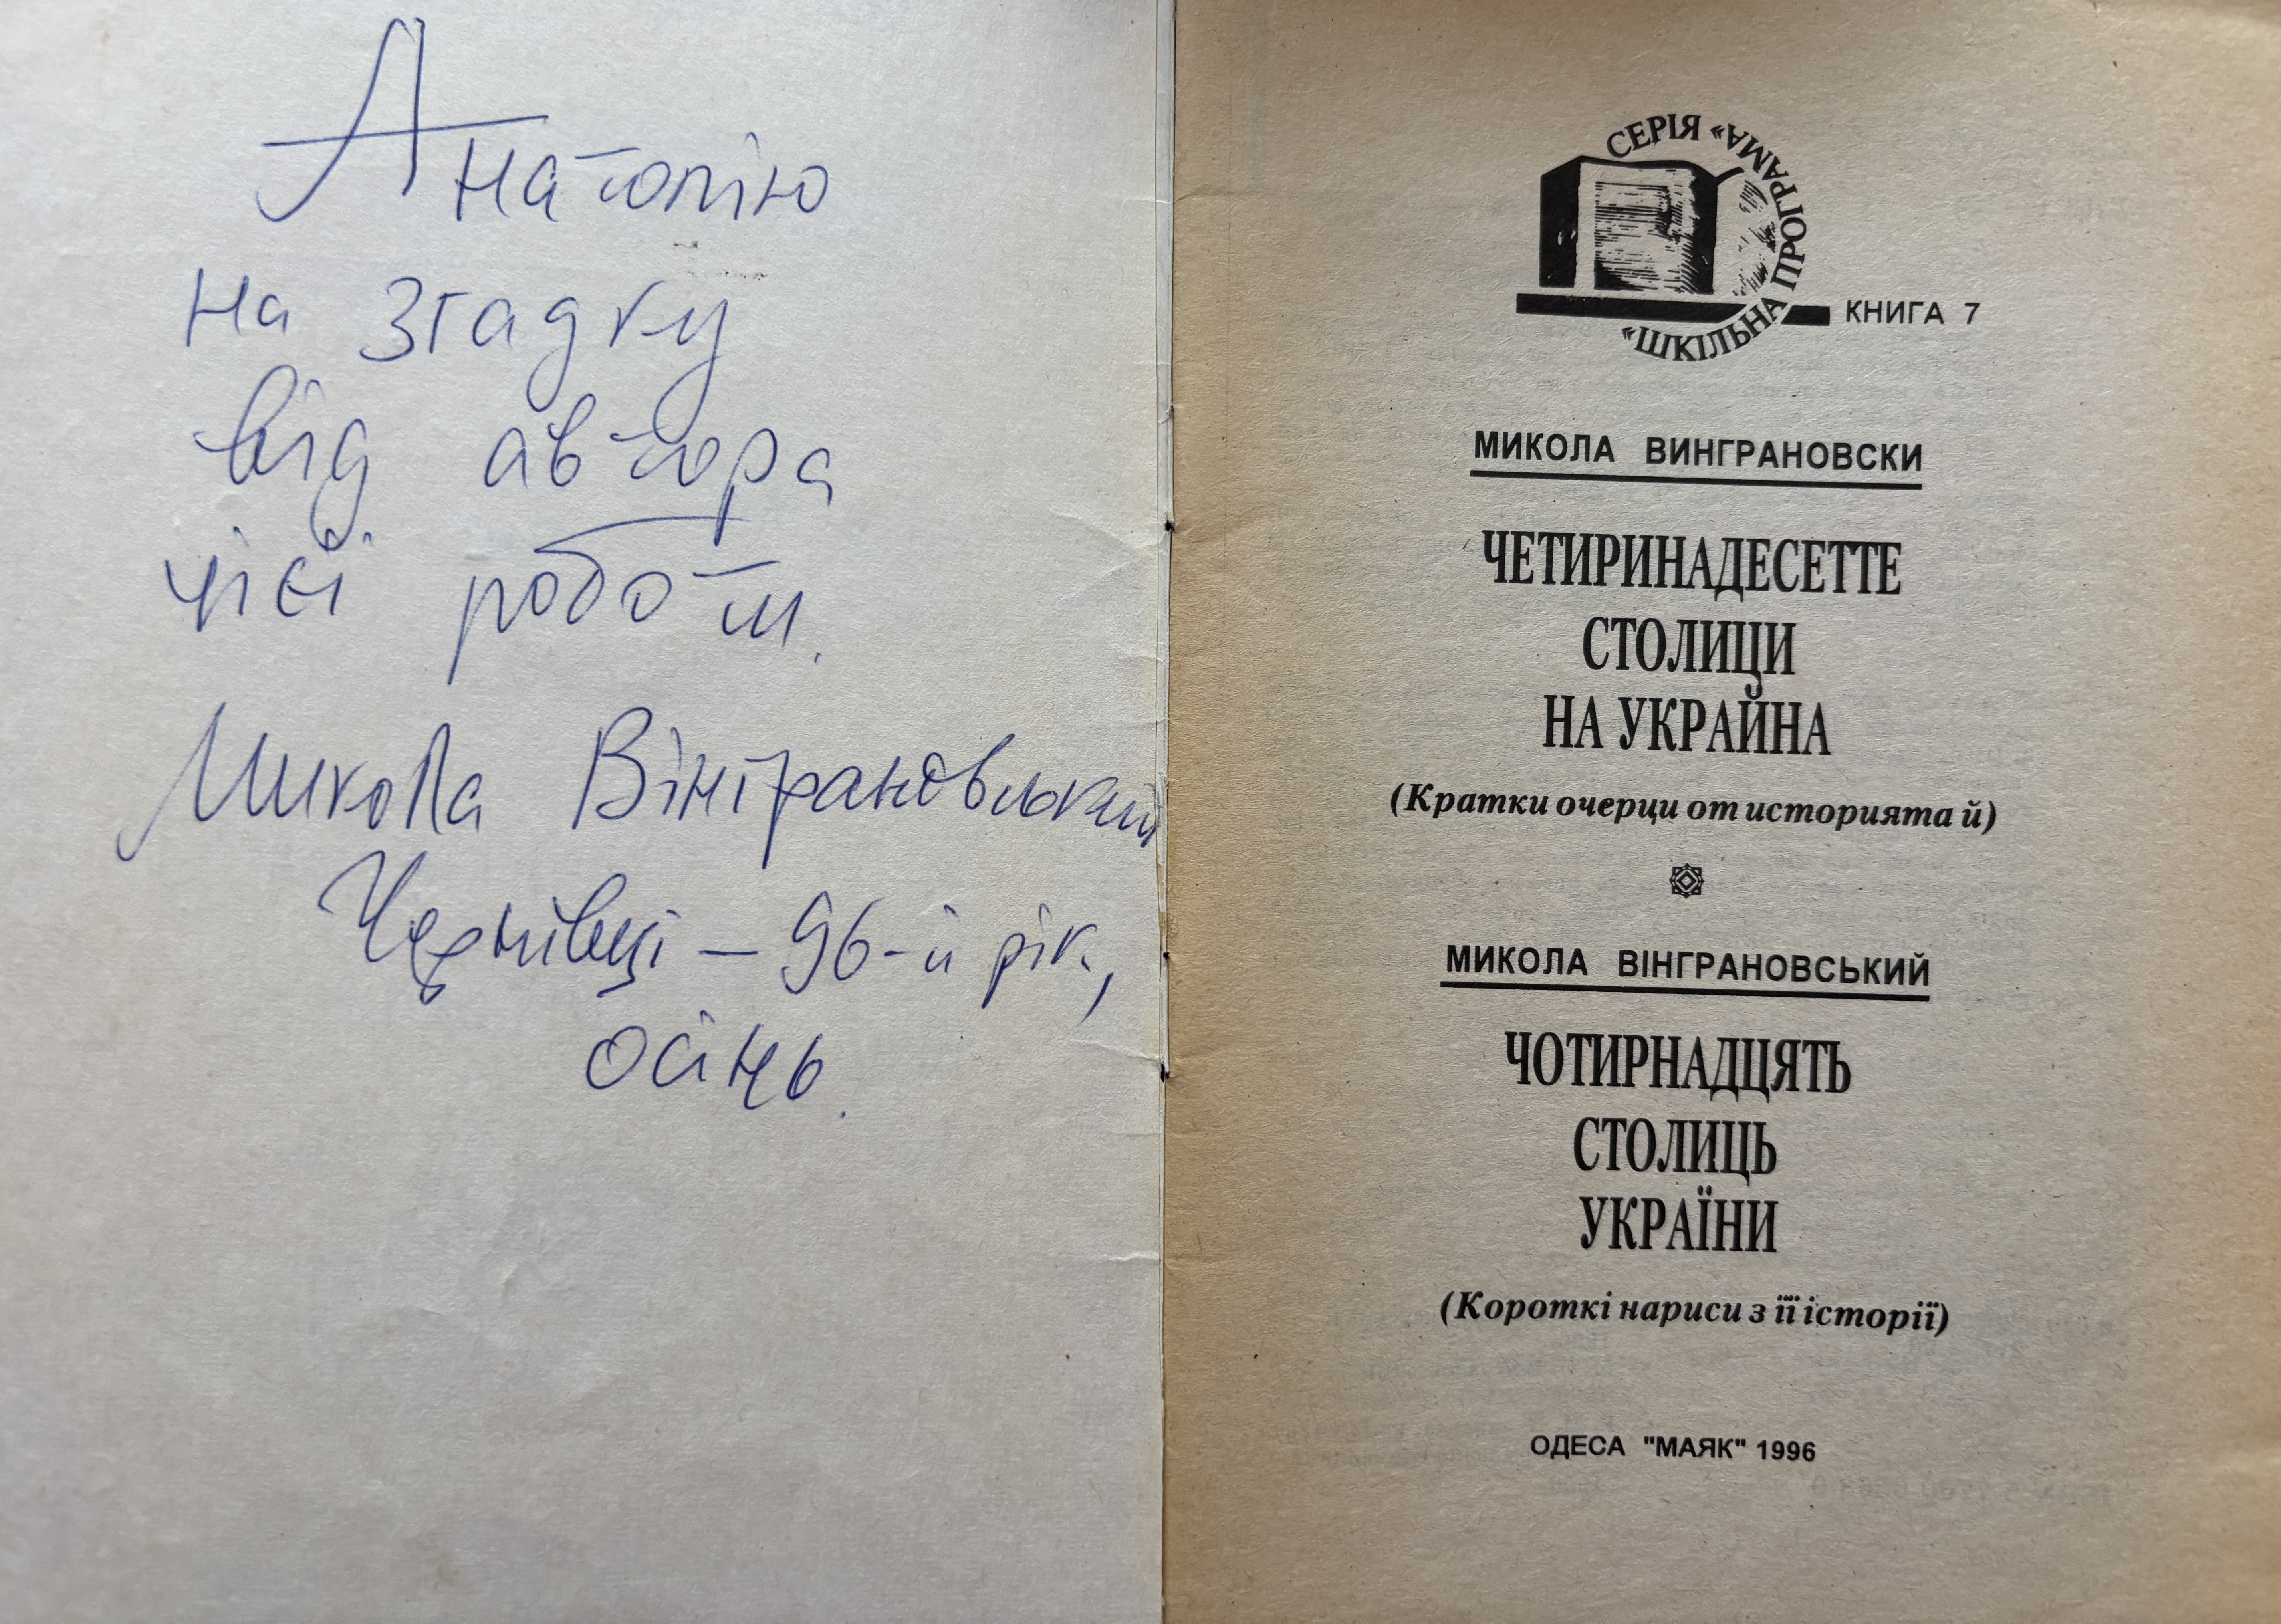 Анатолію
на згадку
від автора
цієї роботи.
Микола Вінграновський
Чернівці – 96-й рік,
осінь.
СЕРІЯ «ШКІЛЬНА ПРОГРАМА»
КНИГА 7
МИКОЛА ВИНГРАНОВСКИ
ЧЕТИРИНАДЕСЕТТЕ
СТОЛИЦИ
НА УКРАЙНА
(Кратки очерци от историята й)
МИКОЛА ВІНГРАНОВСЬКИЙ
ЧОТИРНАДЦЯТЬ
СТОЛИЦЬ
УКРАЇНИ
(Короткі нариси з її історії)
ОДЕСА "МАЯК" 1996